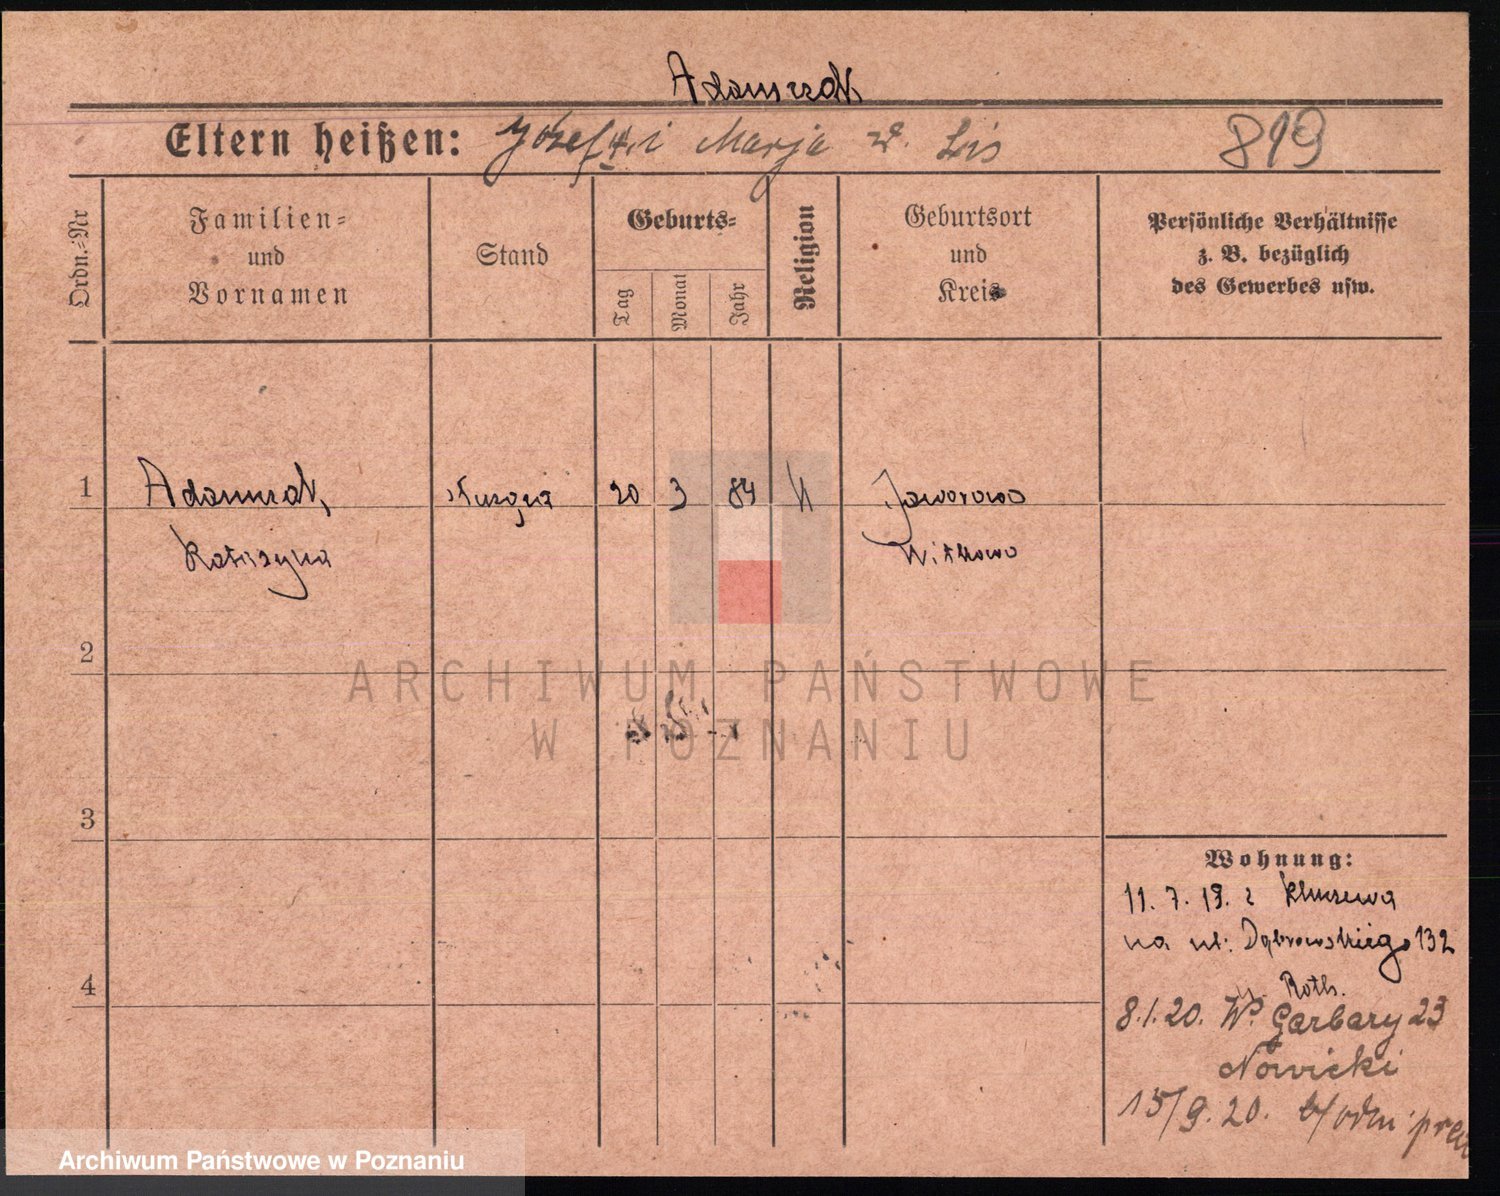 Adamczak
Eltern heißen: Józef †. i Marja z d. Lis 819
Ordn.=Nr
Familien=
und
Vornamen
Stand
Geburts=
Tag
Monat
Jahr
Religion
Geburtsort
und
Kreis
Persönliche Verhältnisse
z. B. bezüglich
des Gewerbes usw.
1 Adamczak, służąca 20 3 84 k Jaworowo
Katarzyna Witkowo
2
3
4
Wohnung:
11. 7. 19. z Kluczewa
na ul: Dąbrowskiego 132
Roth.
8.1.20. W. Garbary 23
Nowicki
15/9.20.
ARCHIWUM PAŃSTWOWE
W POZNANIU
Archiwum Państwowe w Poznaniu